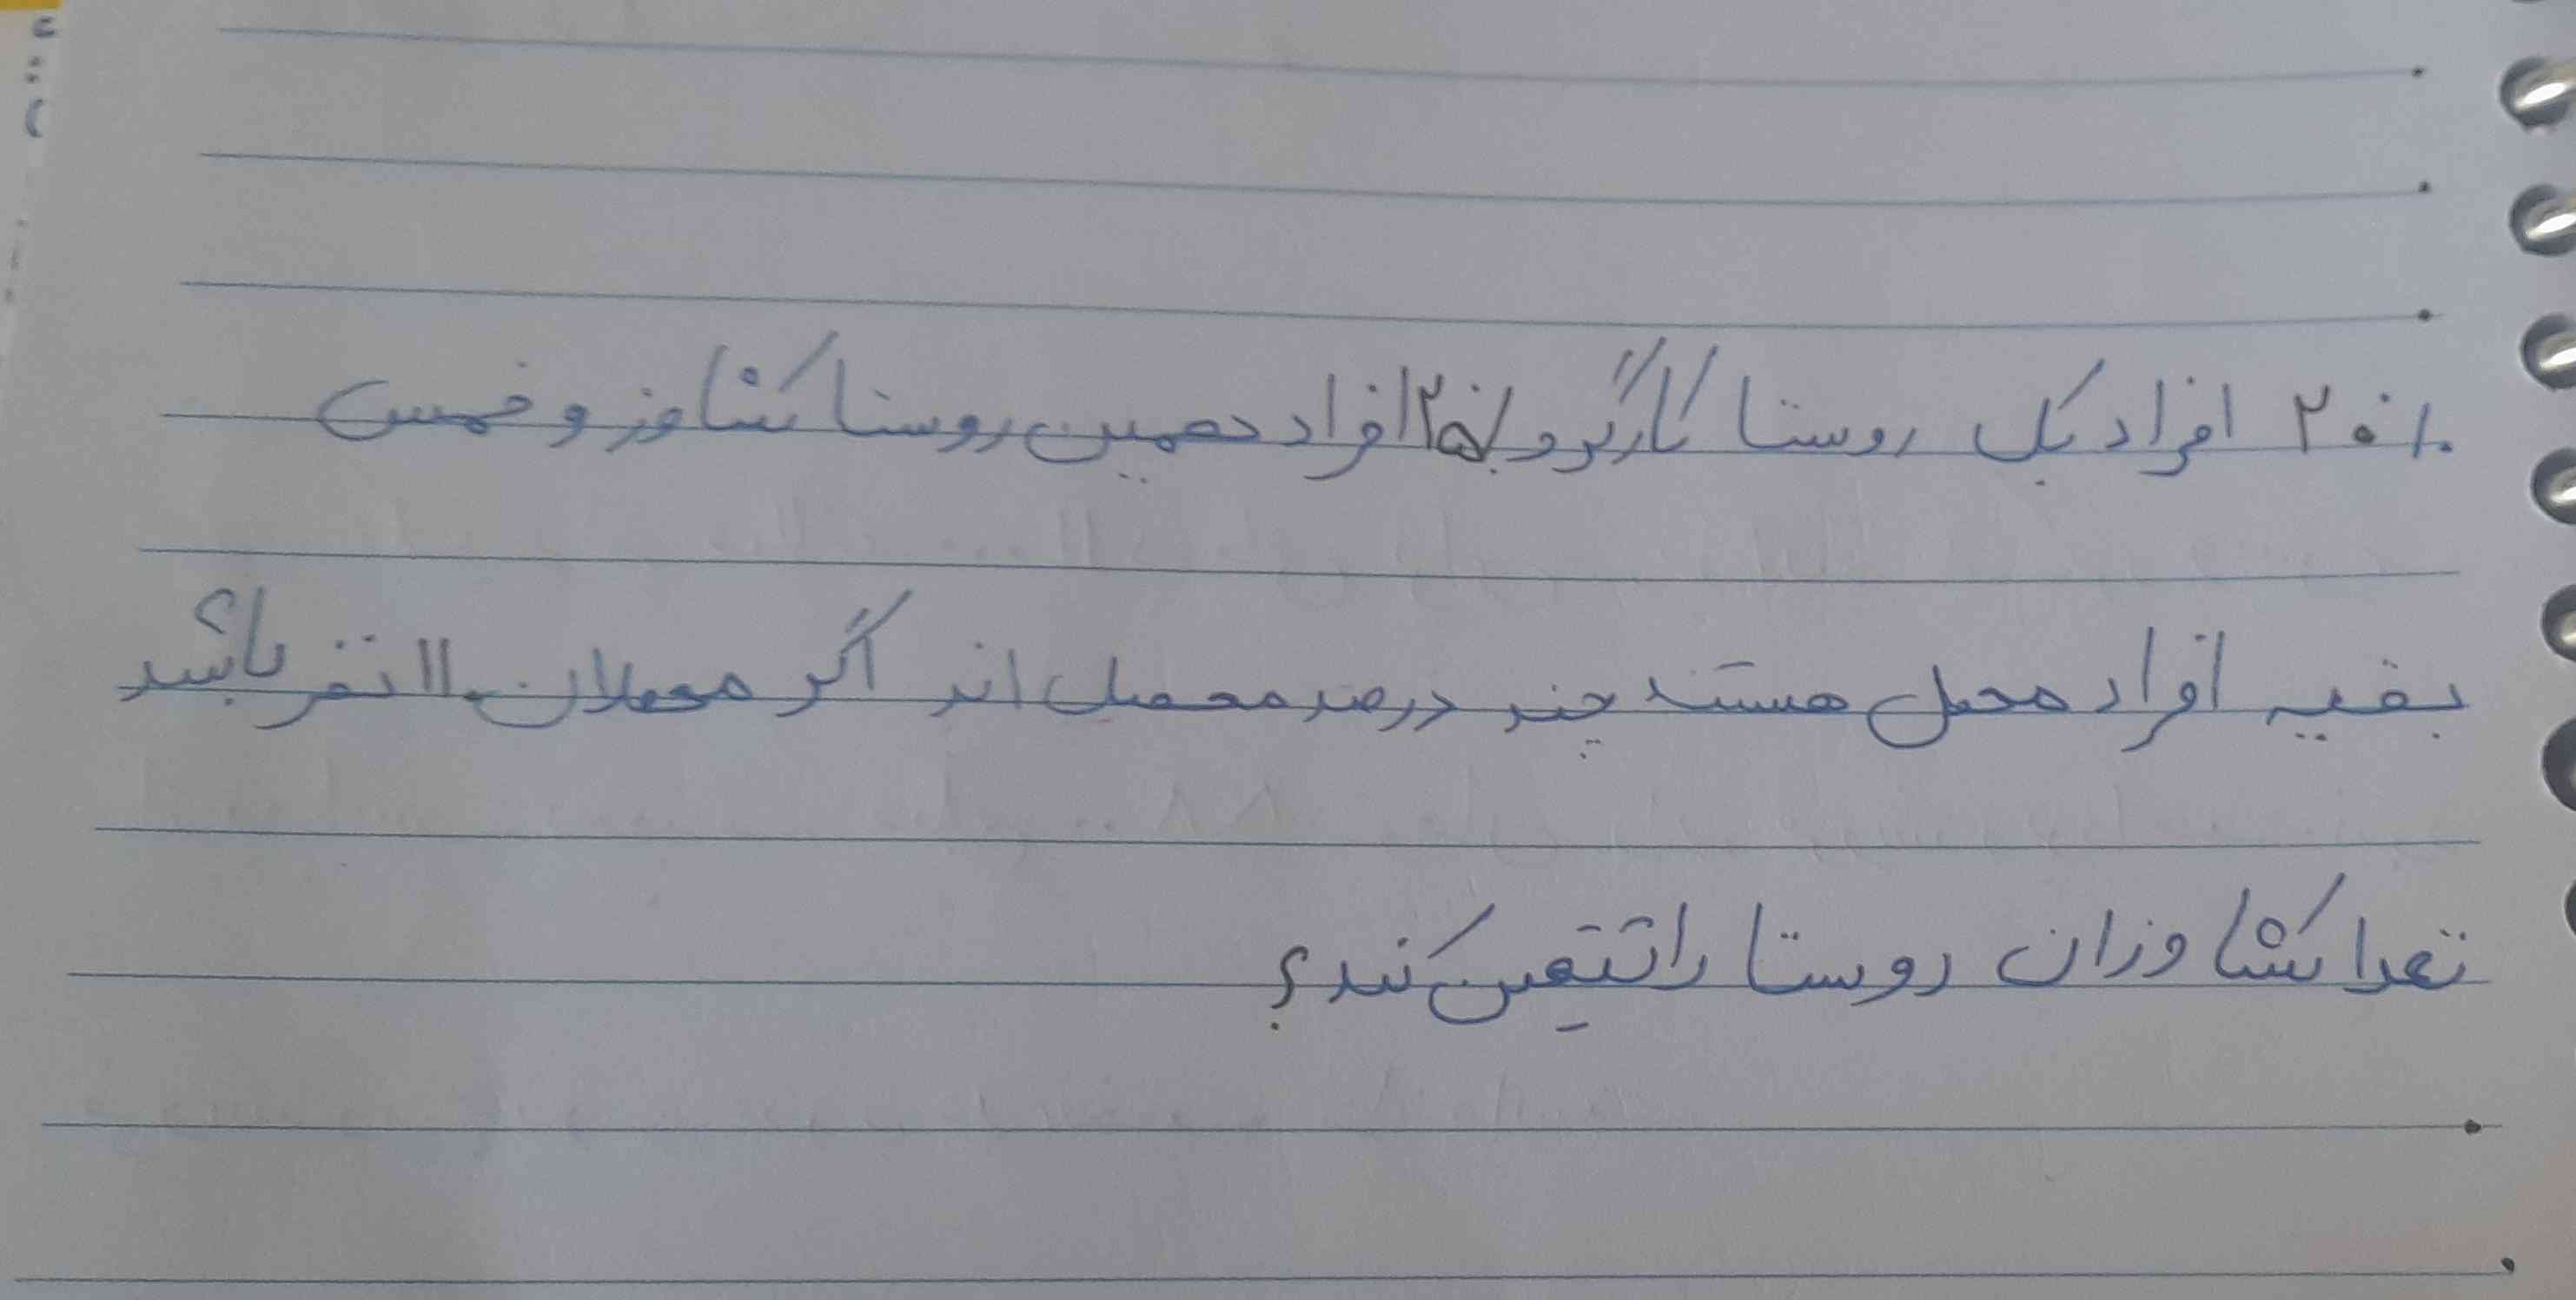 ٪۲۰ افراد یک روستا کارگر و ٪۲۵ افراد همین روستا کشاورز و خمس
بقیه افراد محصل هستند چند درصد محصل اند اگر محصلان ۱۱۰ نفر باشد؟
تعدا کشاورزان روستا را تتعین کنید؟